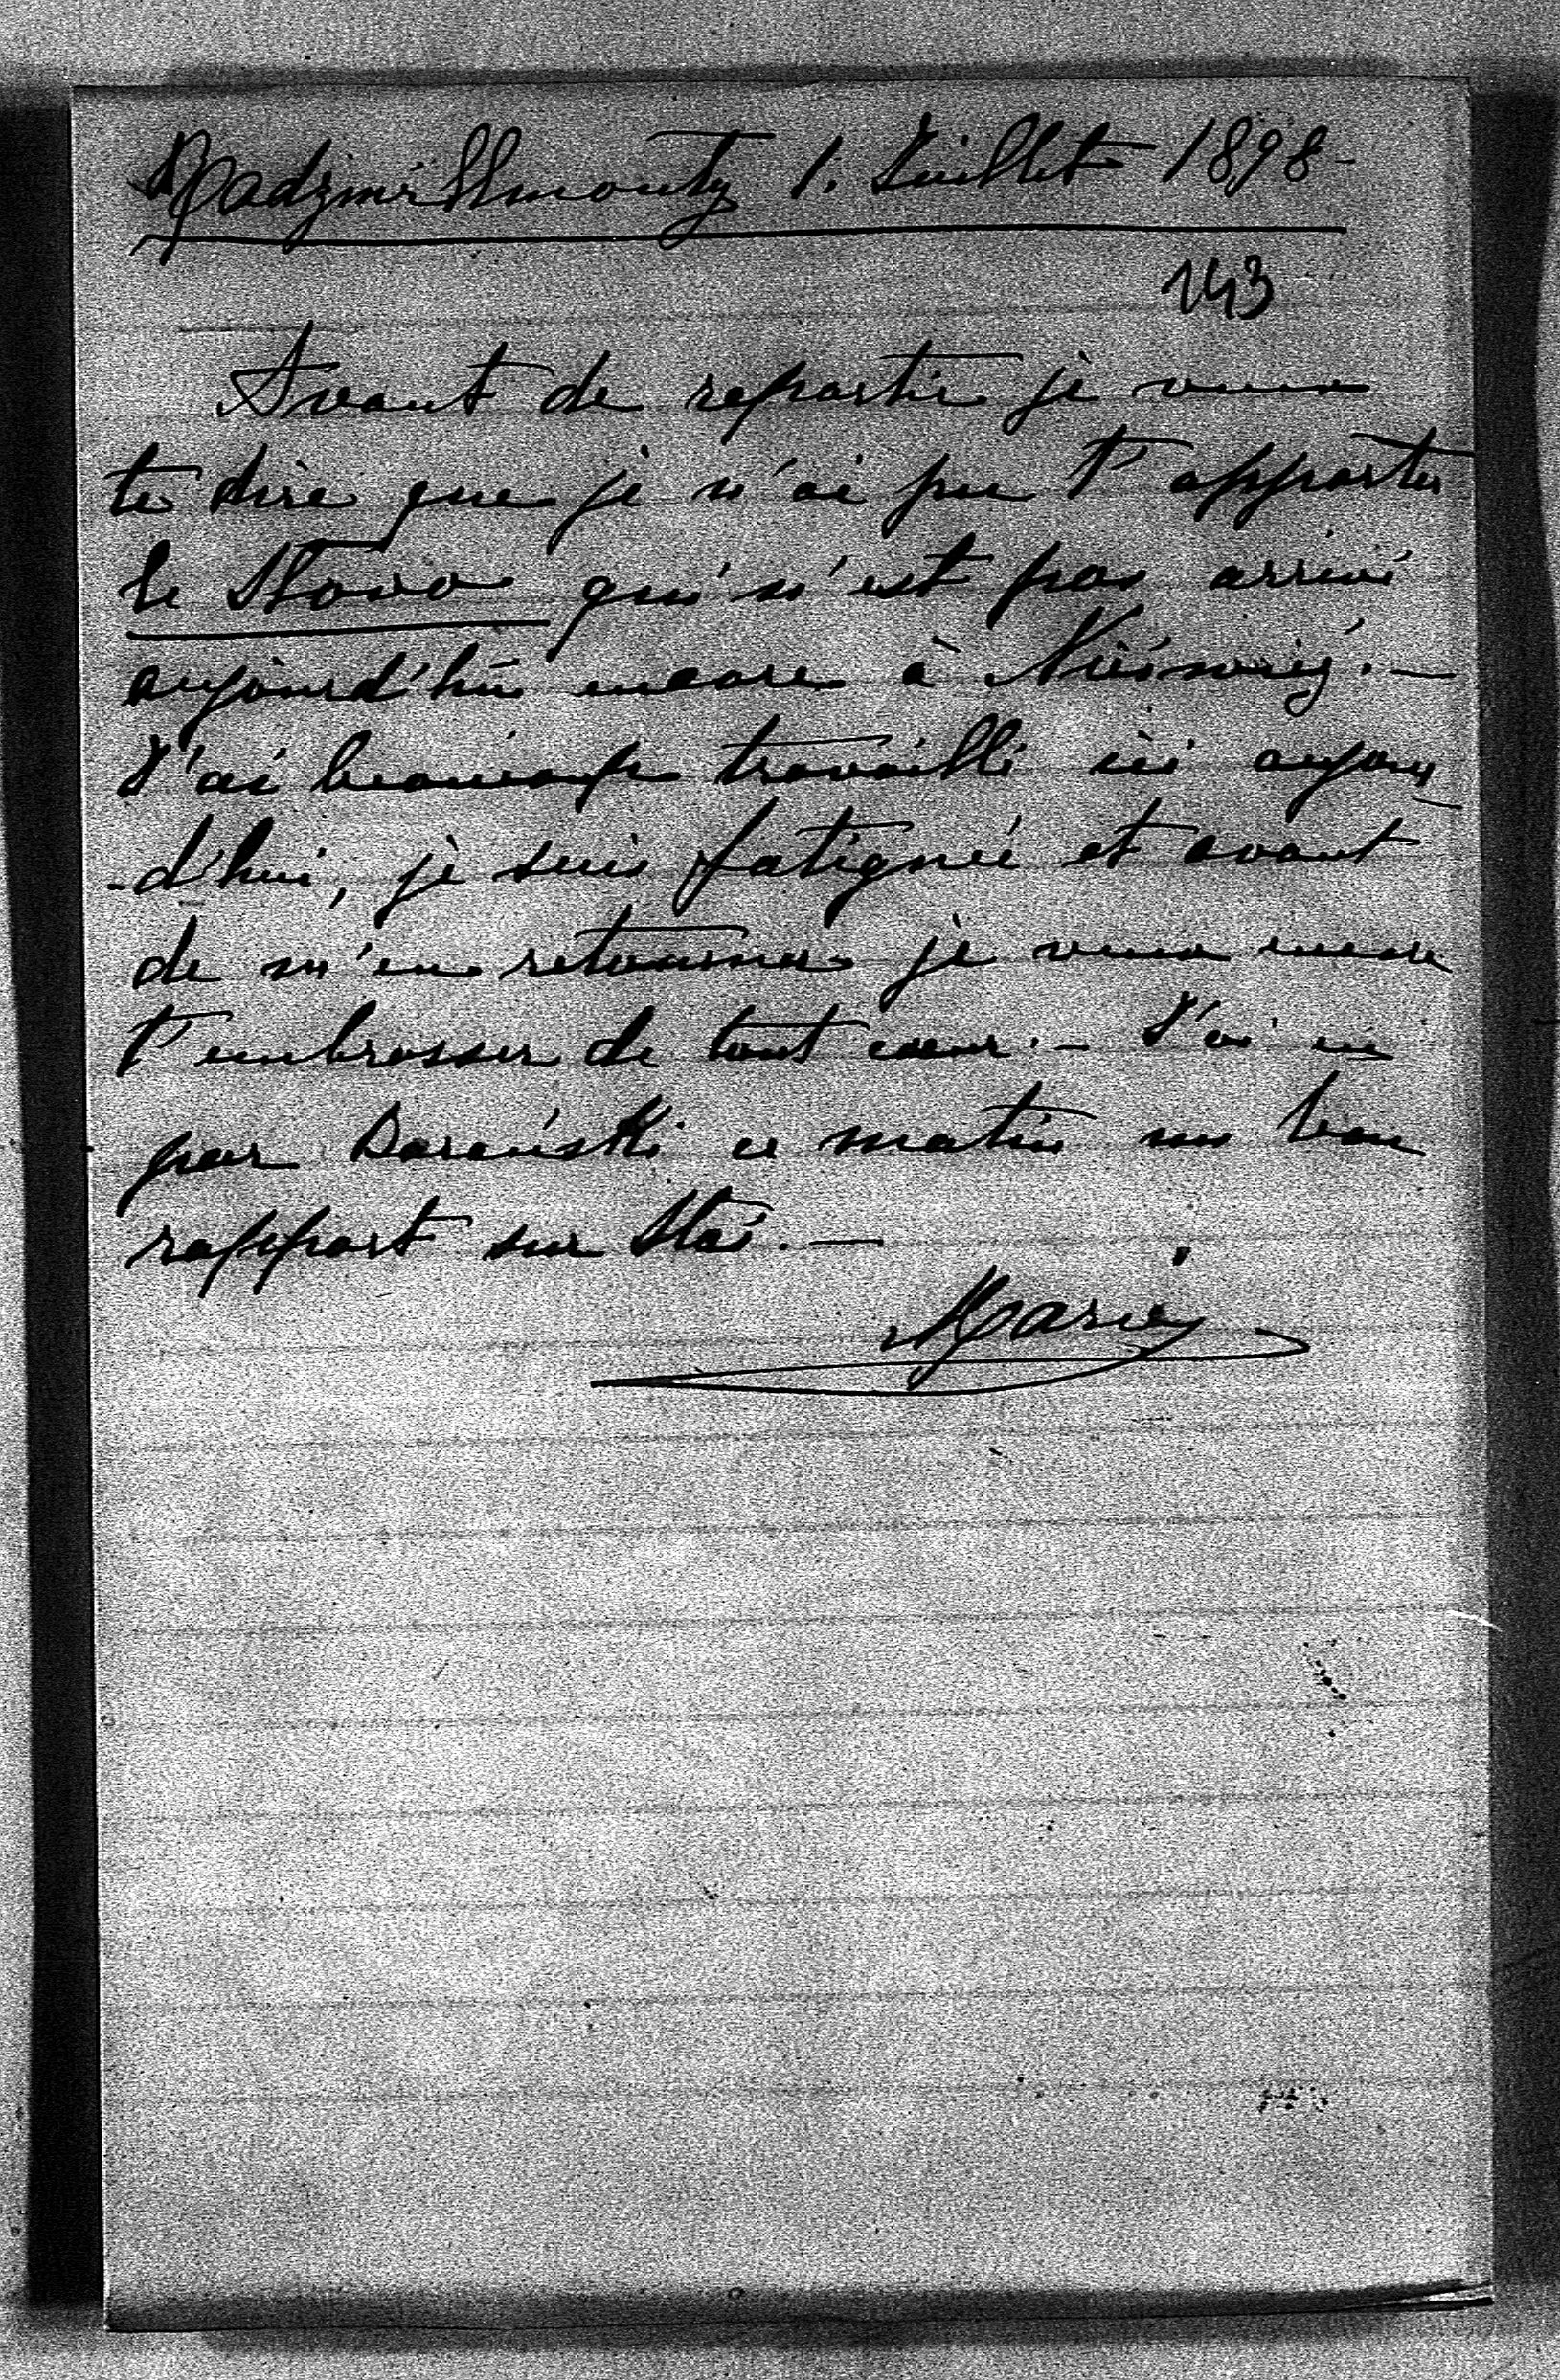 Radziwillmonty 1. Juillet 1898-
143
Avant de repartir je veux
te dire que je n'ai pu t'apporter
le Słowo qui n'est pas arrivé
aujourd'hui encore à Nieśwież. —
J'ai beaucoup travaillé ici aujour
-d'hui, je suis fatiguée et avant
de m'en retourner je veux encore
t'embrasser de tout cœur. — J'ai eu
par Barański ce matin un bon
rapport sur Staś. —
Marie